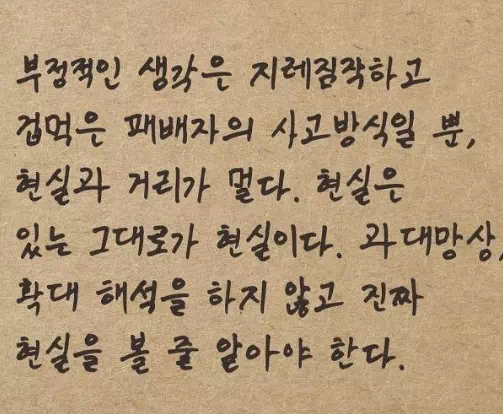 부정적인 생각은 지레짐작하고
겁먹은 패배자의 사고방식일 뿐,
현실과 거리가 멀다. 현실은
있는 그대로가 현실이다. 과대망상,
확대 해석을 하지 않고 진짜
현실을 볼 줄 알아야 한다.